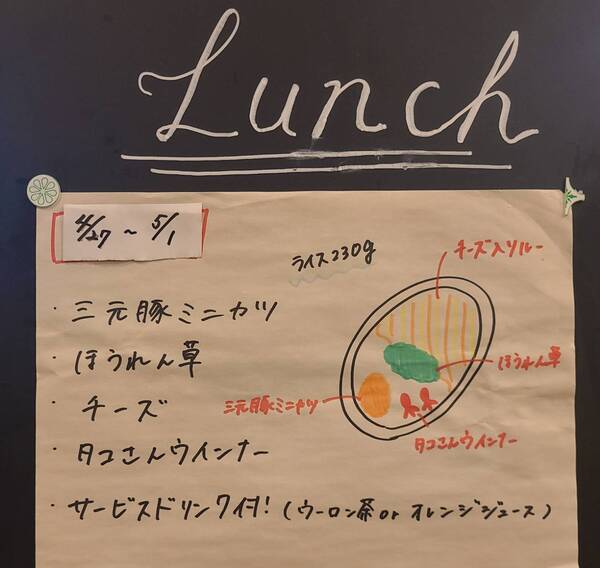 Lunch
4/27 ~ 5/1
ライス230g
チーズ入りルー
・三元豚ミニカツ
・ほうれん草
ほうれん草
・チーズ
三元豚ミニカツ
タコさんウインナー
・タコさんウインナー
・サービスドリンク付!(ウーロン茶 or オレンジジュース)